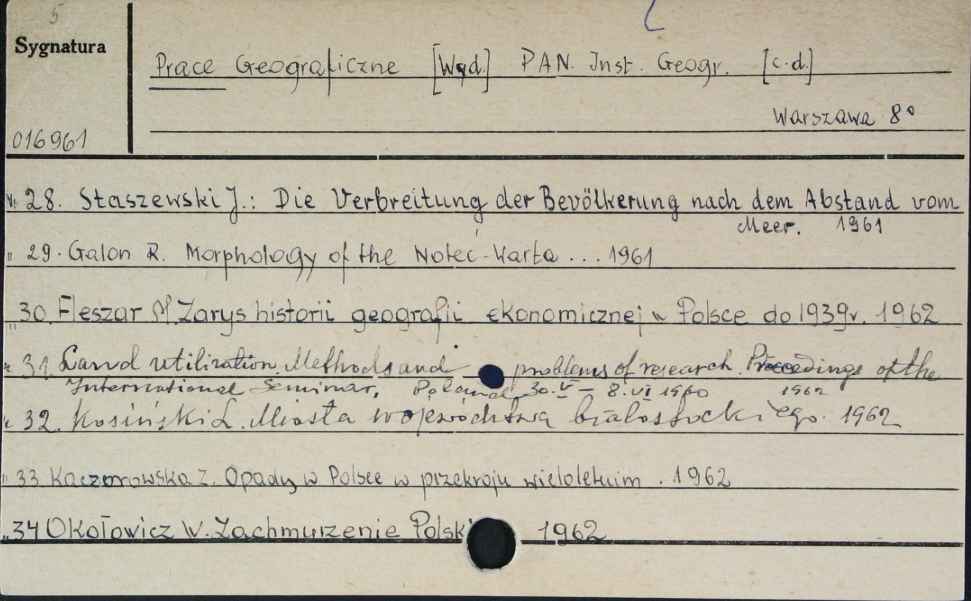 5
Sygnatura
Prace Geograficzne [Wyd.] PAN. Inst. Geogr. [c.d.]
Warszawa 8°
016961
Nr 28. Staszewski J.: Die Verbreitung der Bevölkerung nach dem Abstand vom
Meer. 1961
" 29. Galon R. Morphology of the Noteć-Warta ... 1961
" 30. Fleszar M. Zarys historii geografii ekonomicznej w Polsce do 1939r. 1962
" 31. Land utilization, Methods and problems of research. Proceedings of the
International Seminar, Poland, 30.V – 8.VI 1960 1962
" 32. Kosiński L. Miasta województwa białostockiego. 1962
" 33. Kaczorowska Z. Opady w Polsce w przekroju wieloletnim. 1962
" 34 Okołowicz W. Zachmurzenie Polski 1962